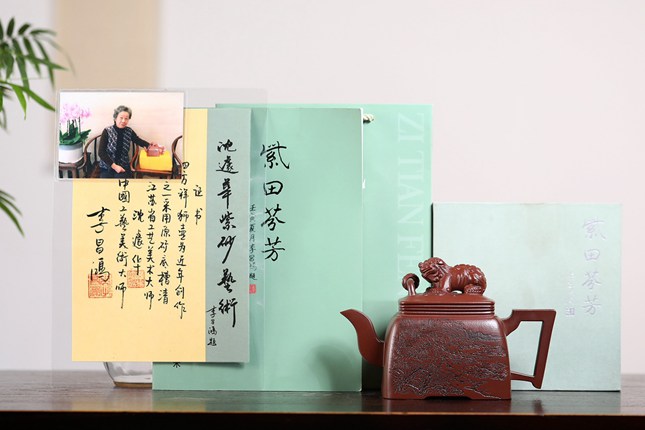 沈蘧華紫砂藝術
李昌鴻題
证书
四方祥狮壶为近年创作
之一采用原矿底槽清
江苏省工艺美术大师
沈蘧华
中國工艺美術大师
李昌鴻
紫田芬芳
ZI TIAN FE
紫田芬芳